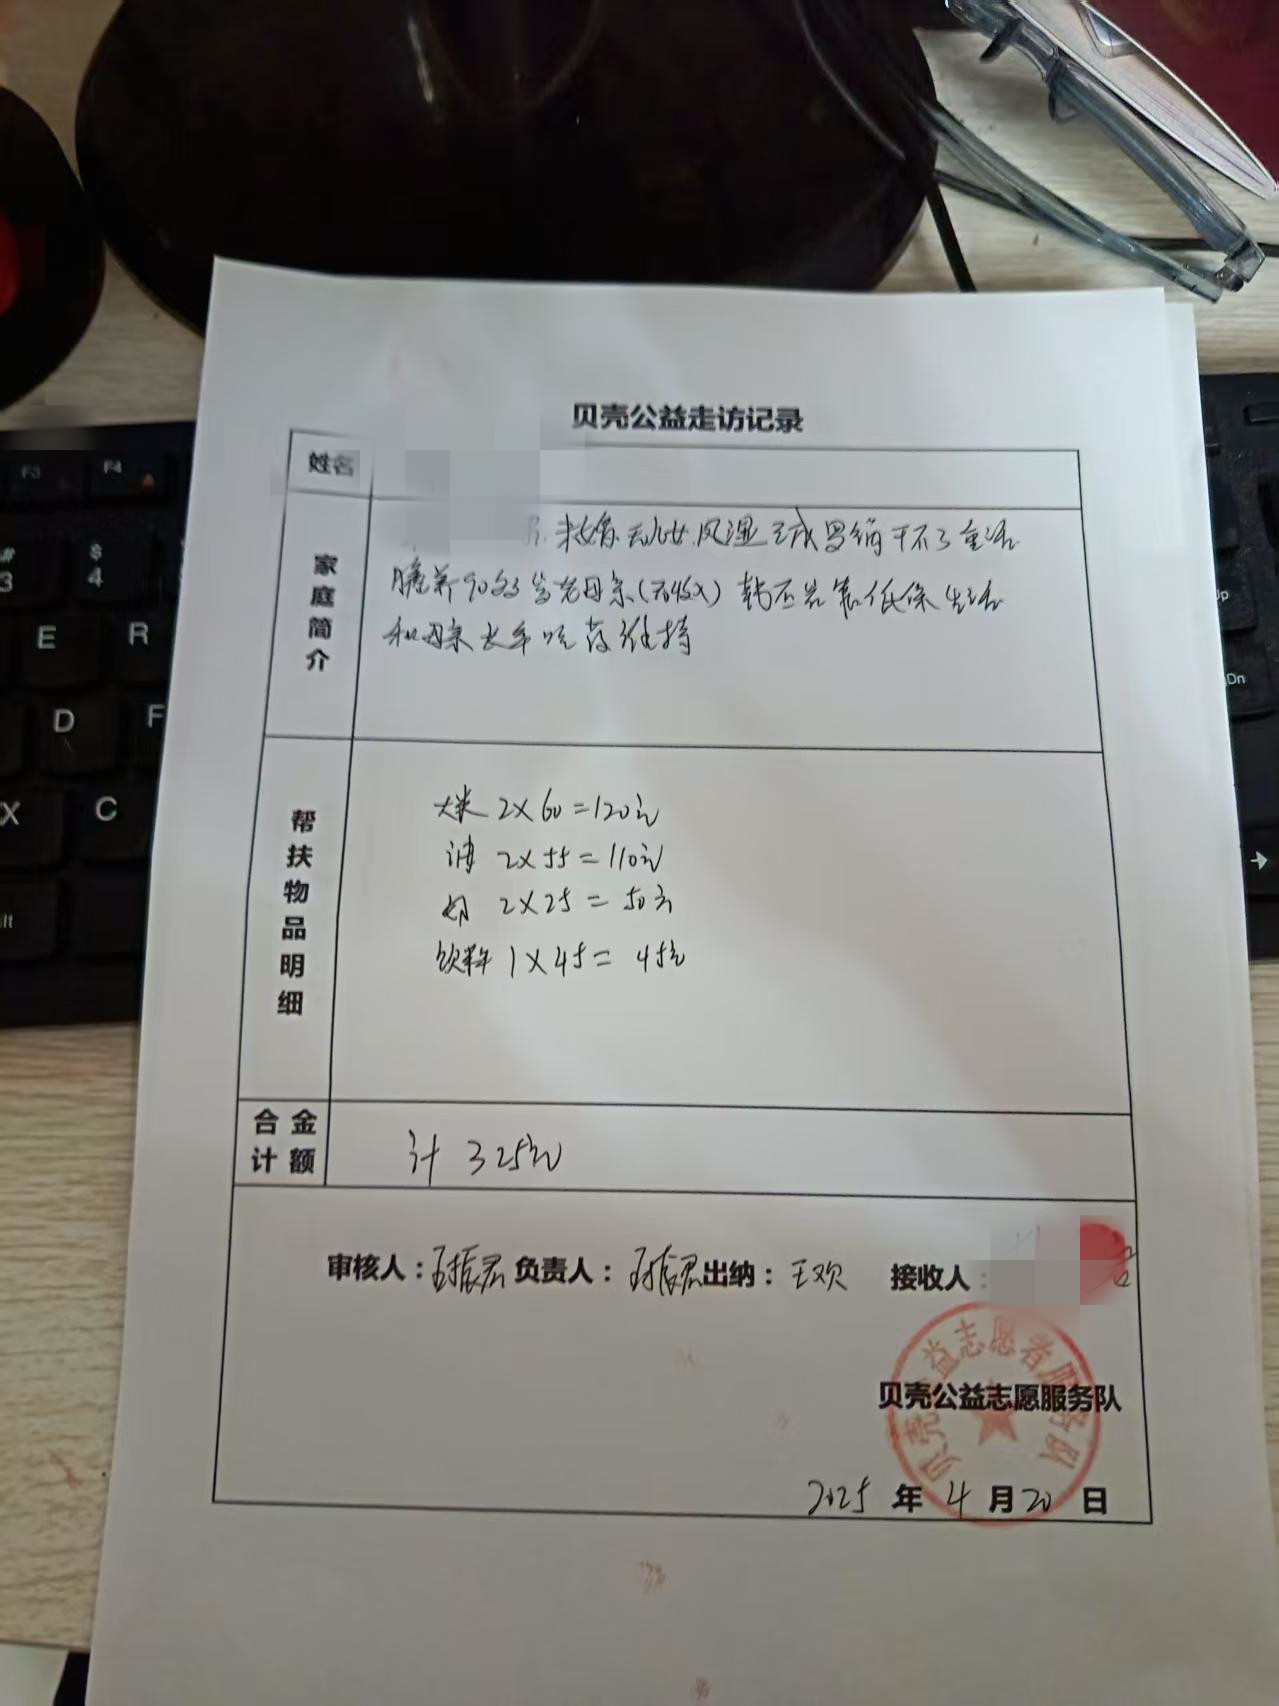 贝壳公益走访记录
姓名
家庭简介
未婚无儿女.风湿 干不了重活
赡养90多岁老母亲(无收入) 靠低保生活
和母亲长年吃药维持
帮扶物品明细
大米 2×60=120元
油 2×55=110元
2×25=50元
饮料 1×45=45元
合计金额
计 325元
审核人：王振君 负责人：王振君 出纳：王欢 接收人：
贝壳公益志愿者服务队
贝壳公益志愿服务队
2025年4月20日
F3 F4
# 3 $ 4
E R
D F
X C
Dn